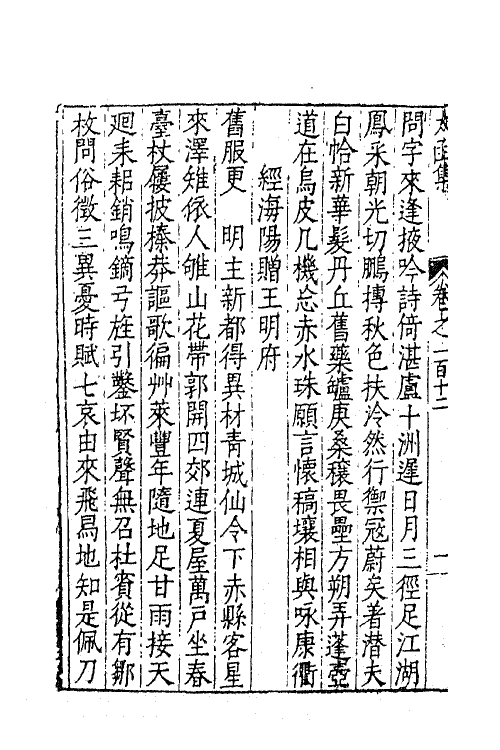 太函集 卷之一百十二 一
問字來逢掖吟詩倚湛盧十洲遲日月三徑足江湖
鳳采朝光切鵬摶秋色扶泠然行禦冦蔚矣著潛夫
白帢新華髮丹丘舊藥罏庚桑穣畏壘方朔弄蓬壺
道在烏皮几機忘赤水珠願言懷稿壤相與咏康衢
經海陽贈王明府
舊服更 明主新都得異材青城仙令下赤縣客星
來澤雉依人雊山花帶郭開四郊連夏屋萬戶坐春
臺杖屨披榛莽謳歌徧艸萊豐年隨地足甘雨接天
廻耒耜銷鳴鏑弓旌引鑿坏賢聲無召杜賓從有鄒
枚問俗徵三異憂時賦七哀由來飛舃地知是佩刀